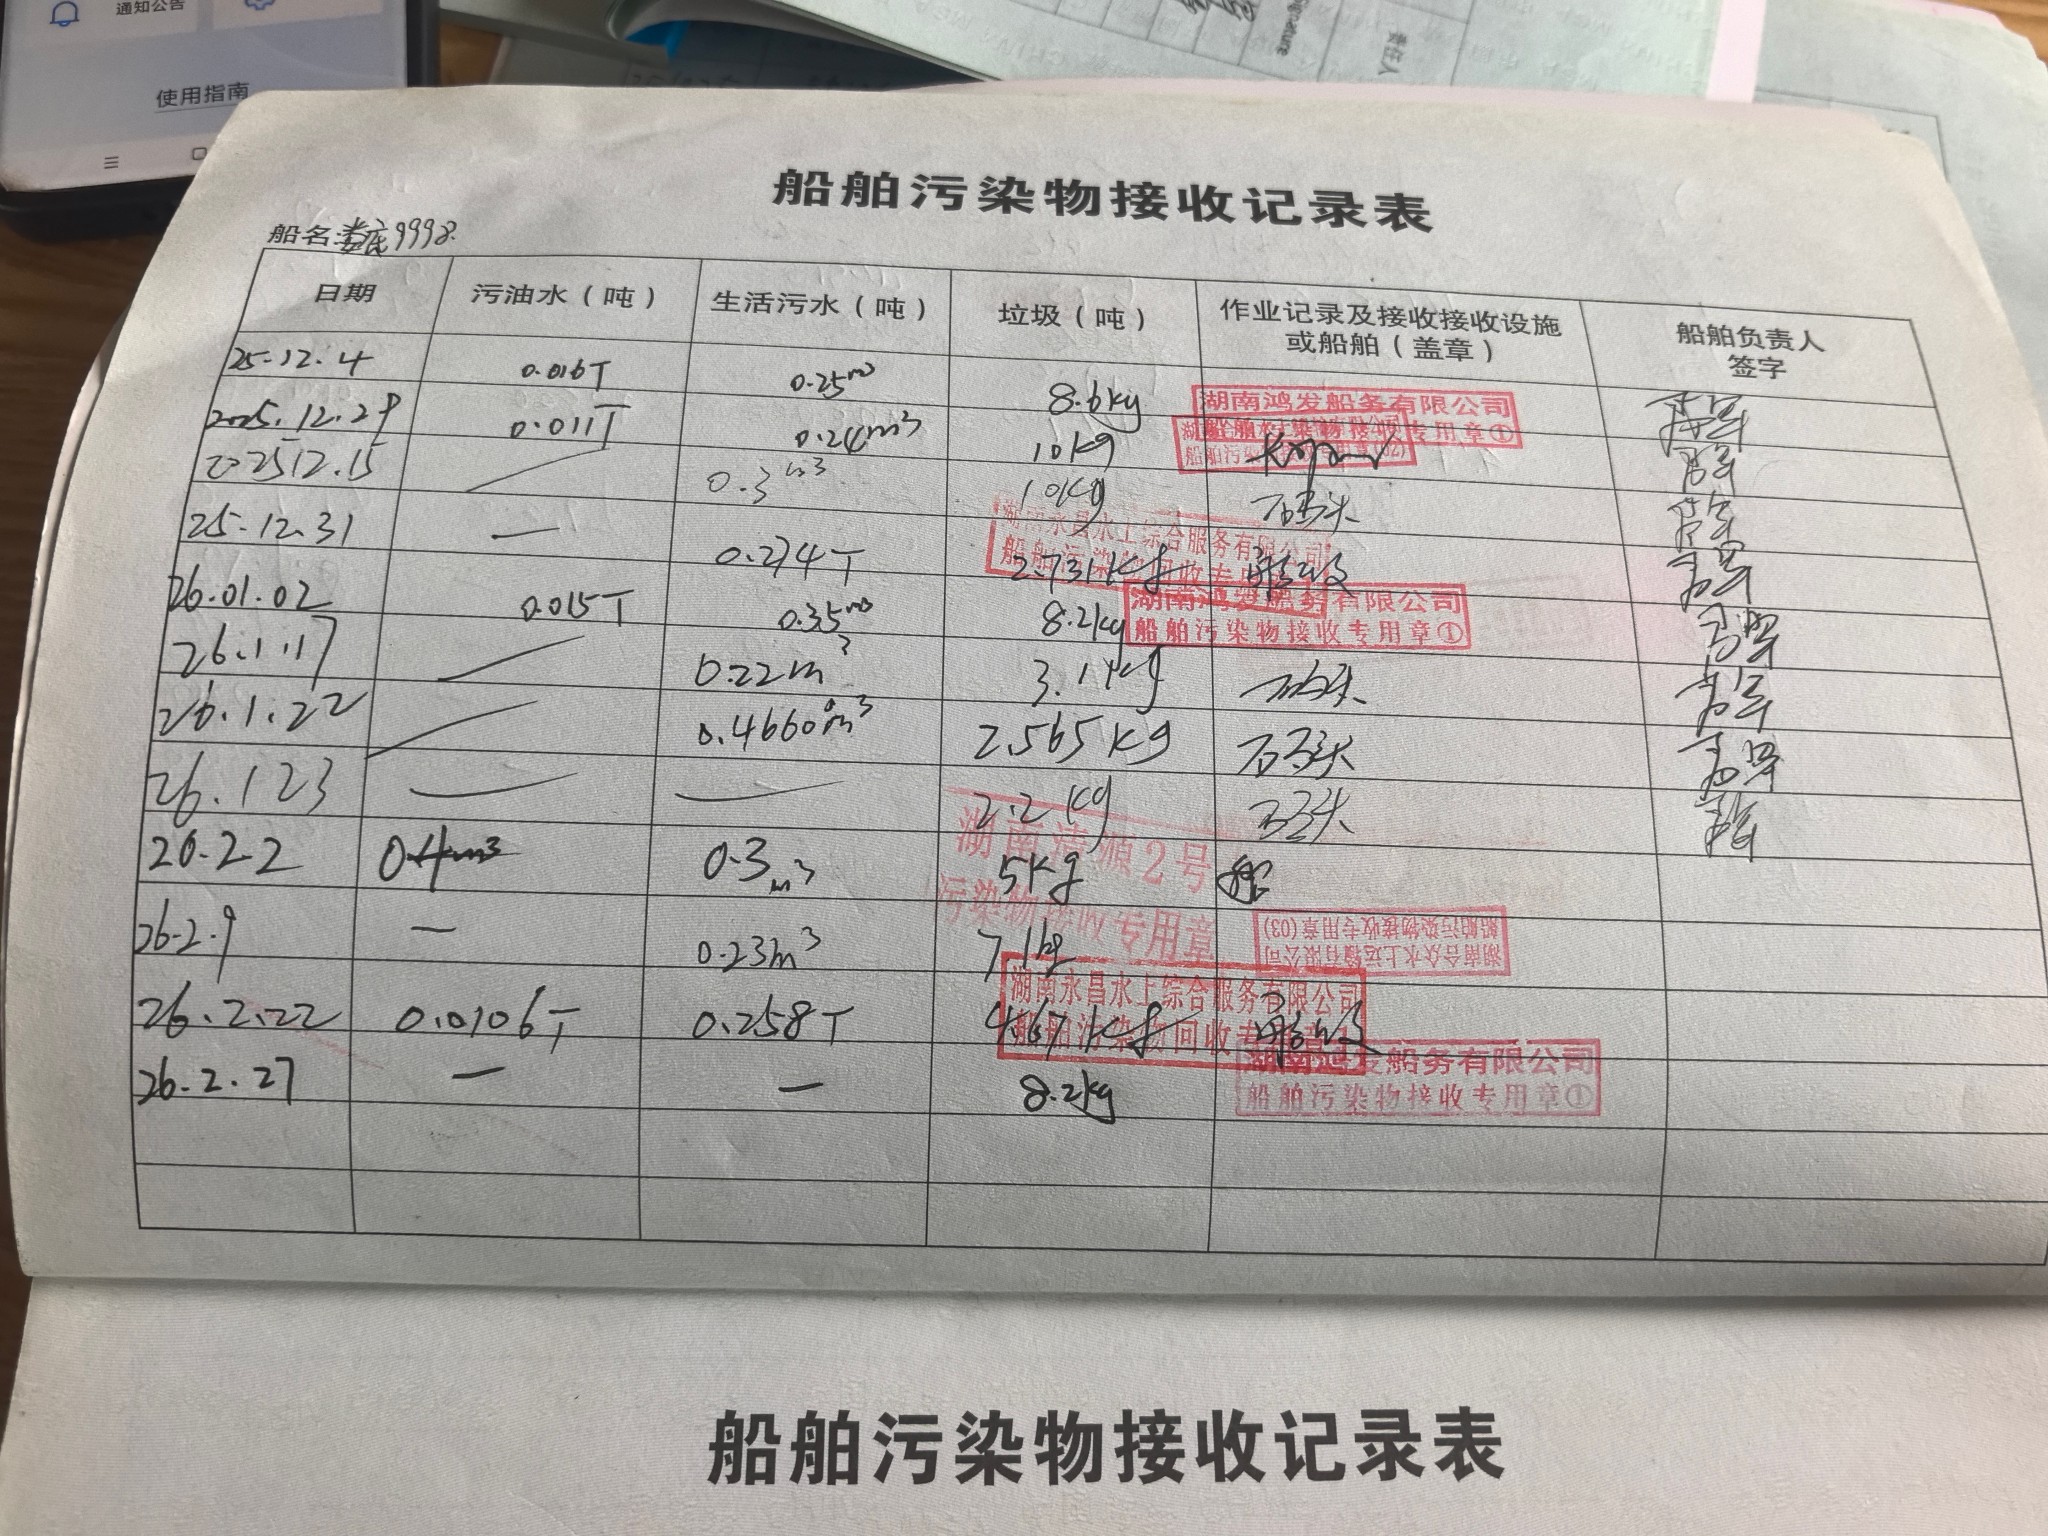 通知公告
使用指南
责任人
船舶污染物接收记录表
船名:娄底9998.
日期 污油水（吨） 生活污水（吨） 垃圾（吨） 作业记录及接收接收设施或船舶（盖章） 船舶负责人签字
25.12.4 0.016T 0.25m³ 8.6kg
湖南鸿发船务有限公司
船舶污染物接收专用章①
2025.12.29 0.011T 0.24m³ 10kg
202512.15 0.3m³ 10kg 石码头
25.12.31 — 0.274T 2.731kg
湖南永昌水上综合服务有限公司
船舶污染物回收专用章
26.01.02 0.015T 0.35m³ 8.2kg
湖南鸿发船务有限公司
船舶污染物接收专用章①
26.1.17 0.22m³ 3.1kg 石码头
26.1.22 0.4660m³ 2.565kg 石码头
26.1.23 — — 2.2kg 石码头
26.2.2 0.4m³ 0.3m³ 5kg
湖南清源2号
污染物接收专用章
26.2.9 — 0.23m³ 7.1kg
湖南合众水上运输有限公司
船舶污染物接收专用章(03)
26.2.22 0.0106T 0.258T 4.671kg
湖南永昌水上综合服务有限公司
船舶污染物回收专用章
26.2.27 — — 8.2kg
湖南鸿发船务有限公司
船舶污染物接收专用章①
船舶污染物接收记录表